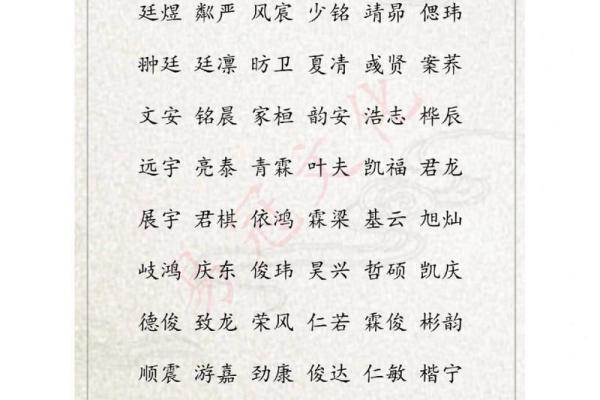 廷煜 粼严 风宸 少铭 靖昴 偲玮
翀廷 廷凛 昉卫 夏凊 彧贤 案荞
文安 铭晨 家桓 韵安 浩志 桦辰
远宇 亮泰 青霖 叶夫 凯福 君龙
展宇 君棋 依鸿 霖梁 基云 旭灿
岐鸿 庆东 俊玮 昊兴 哲硕 凯庆
德俊 致龙 荣风 仁若 霖俊 彬韵
顺震 游嘉 劲康 俊达 仁敏 楷宁